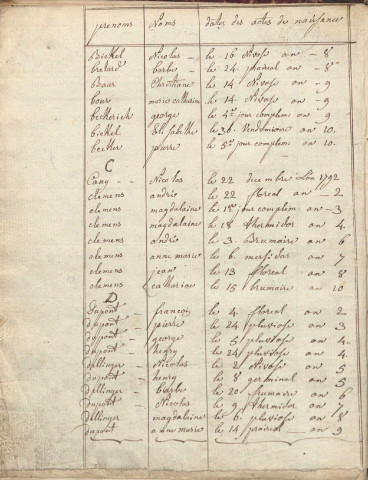 prenoms Noms dates des actes de naissance
Bickel Nicolas le 16 Nivose an 8
bretard barbe le 24 prairal an 8
Baur Christiane le 14 Nivose an 9
bour marie catherin le 14 Nivose an 9
beckerich george le 4e jour complem an 9
bickel Elisabethe le 30 Vendemiaire an 10.
becker pierre le 5e jour complem an 10.
C
Cany Nicolas le 22 decembre L'an 1792
clemens andré le 22 floreal an 2
clemens magdalaine le 1er jour complem an 3
clemens magdalaine le 18 thermidor an 4.
clemens andré le 3. Brumaire an 6
clemens anne marie le 6 messidor an 7
clemens jean le 13 floreal an 8
clemens catharine le 15 brumaire an 10
D
Dupont francois le 4. floreal an 2
dupont pierre le 24 pluviose an 3
dupont george le 5 pluviose an 4
dupont henry le 24 pluviose an 4
dellinger Nicolas le 2 Nivose an 5
dupont henry le 8 germinal an 5
dellinger barbe le 20 frumaire an 6
dupont Nicolas le 9 thermidor an 7
dellinger magdalaine le 6. pluviose an 8
dupont anne marie le 14 prairal an 9